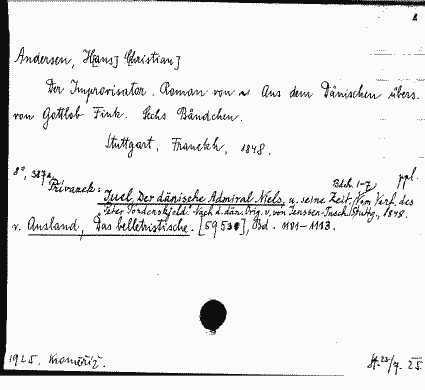 Andersen, H[ans] Christian]
Der Improvisator. Roman von ~ Aus dem Dänischen übers.
von Gottlob Fink. Sechs Bändchen.
Stuttgart, Franckh, 1848.
8°, 387a ppl.
Přívazek: Bdch. 1-7
Juel, Der dänische Admiral Niels, u. seine Zeit. Vom Verf. des
"Peter Tordenskjold." Nach d. dän. Orig. v. von Jenssen-Tusch. Stuttg., 1848.
v. Ausland, Das belletristische. [5953], Bd. 1101-1113.
1925. Kroměříž. 23/7. 25